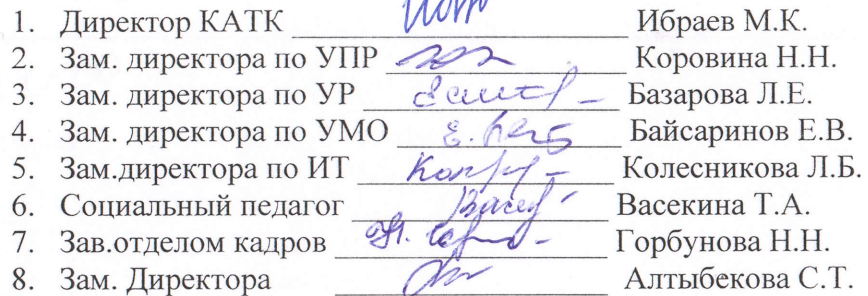 1. Директор КАТК Ибраев М.К.
2. Зам. директора по УПР Коровина Н.Н.
3. Зам. директора по УР Базарова Л.Е.
4. Зам. директора по УМО Байсаринов Е.В.
5. Зам.директора по ИТ Колесникова Л.Б.
6. Социальный педагог Васекина Т.А.
7. Зав.отделом кадров Горбунова Н.Н.
8. Зам. Директора Алтыбекова С.Т.